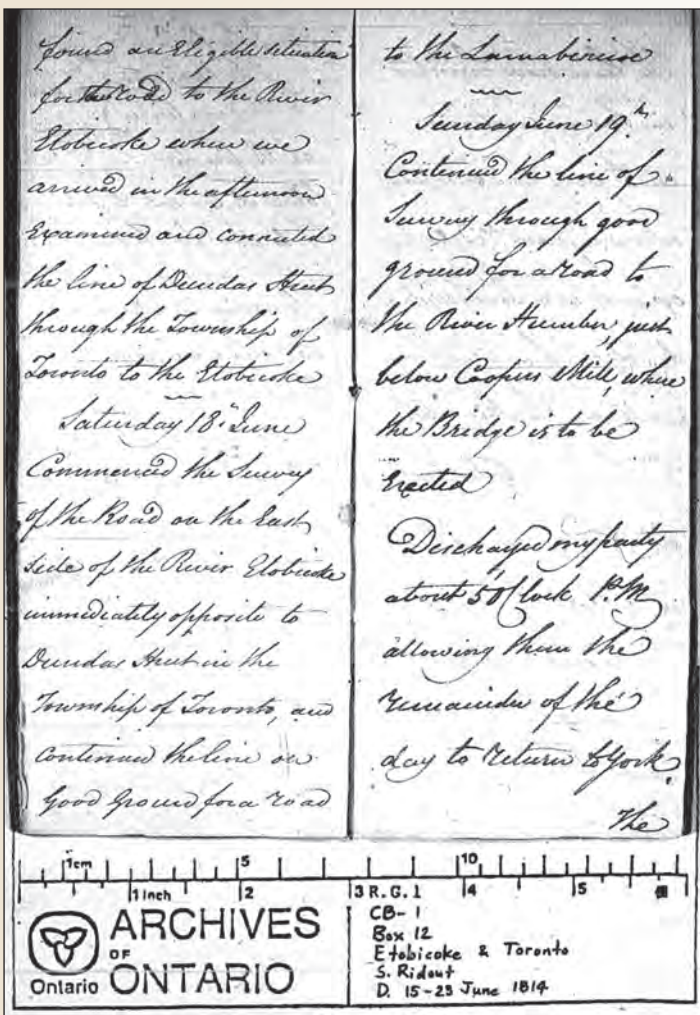 found an Eligible situation
for the road to the River
Etobicoke where we
arrived in the afternoon
Examined and connected
the line of Dundas Street
through the Township of
Toronto to the Etobicoke
Saturday 18th June
Commenced the Survey
of the Road on the East
side of the River Etobicoke
immediately opposite to
Dundas Street in the
Township of Toronto, and
continued the line on
Good Ground for a road
to the
Sunday June 19th
Continued the line of
Survey through good
ground for a road to
the River Humber, just
below Coopers Mill, where
the Bridge is to be
Erected
Discharged my party
about 5 O'Clock P.M
allowing them the
remainder of the
day to return to York.
The
1cm 5 10
1 Inch 2 3 R.G.1 4 5
ARCHIVES
OF
ONTARIO
Ontario
CB-1
Box 12
Etobicoke & Toronto
S. Ridout
D. 15-23 June 1814